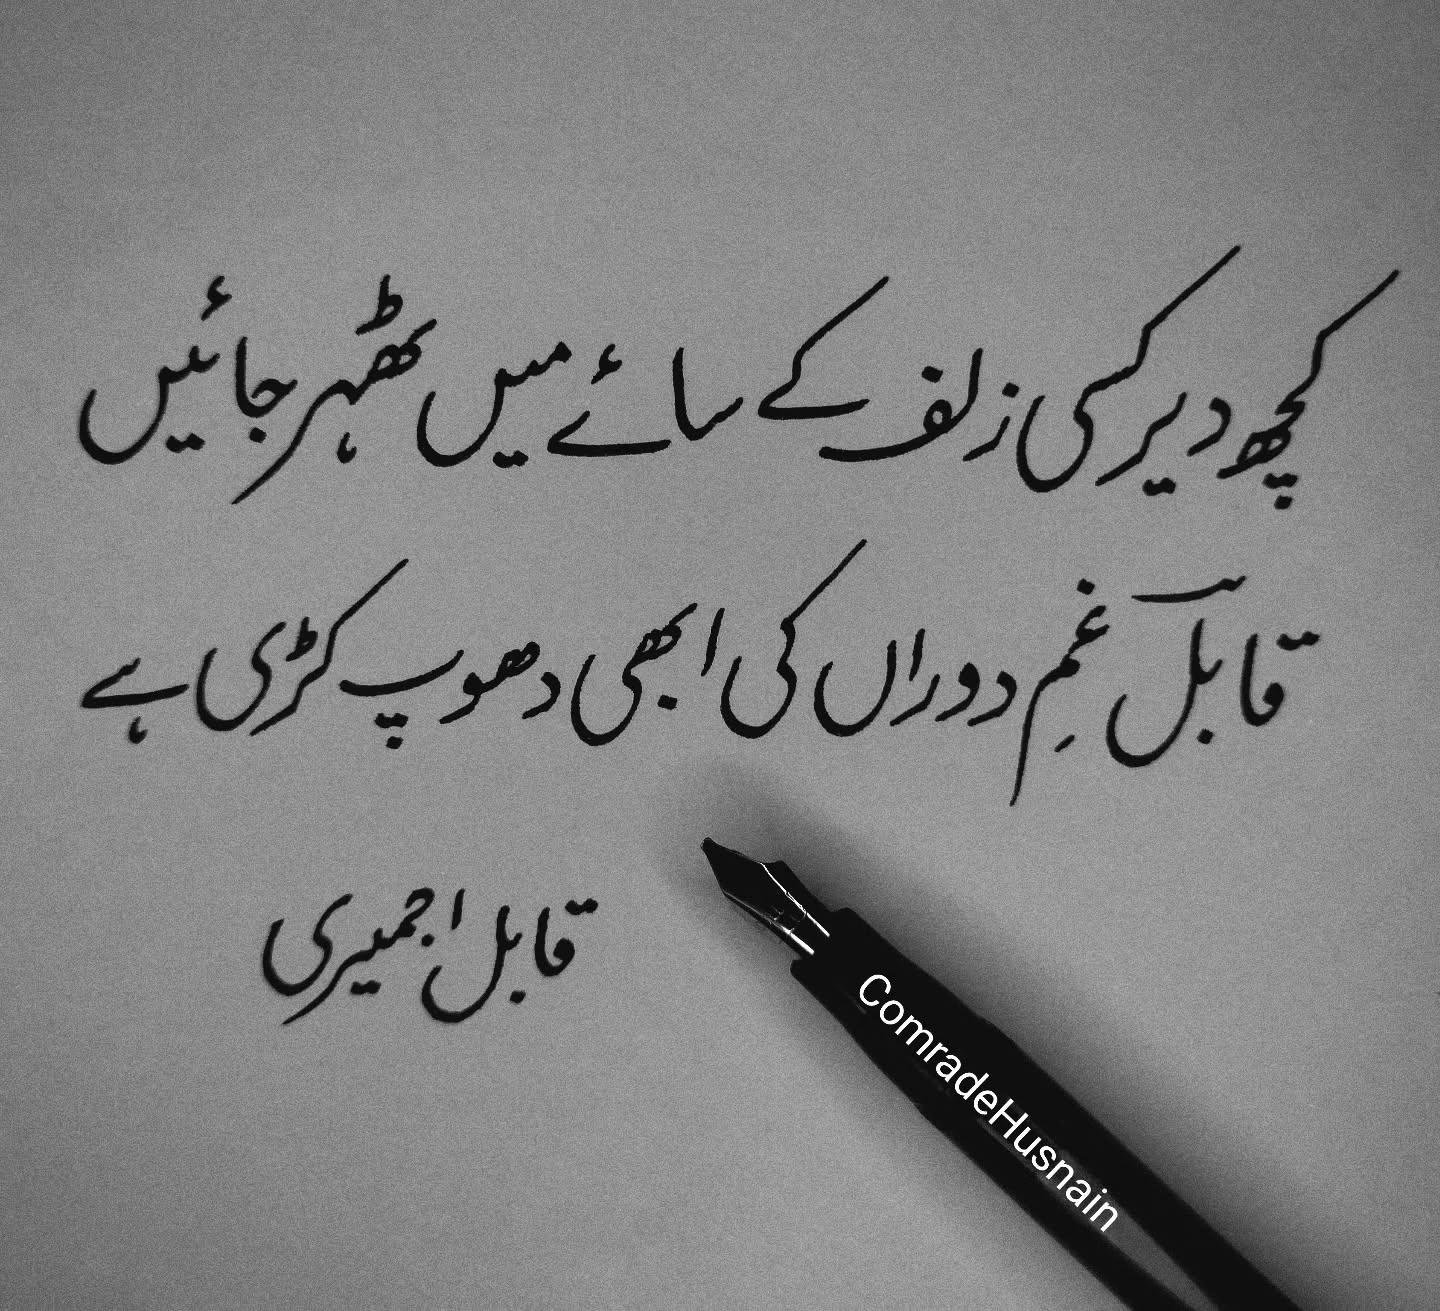 کچھ دیر کسی زلف کے سائے میں ٹھہر جائیں
قابلؔ غمِ دوراں کی ابھی دھوپ کڑی ہے
قابل اجمیری
ComradeHusnain